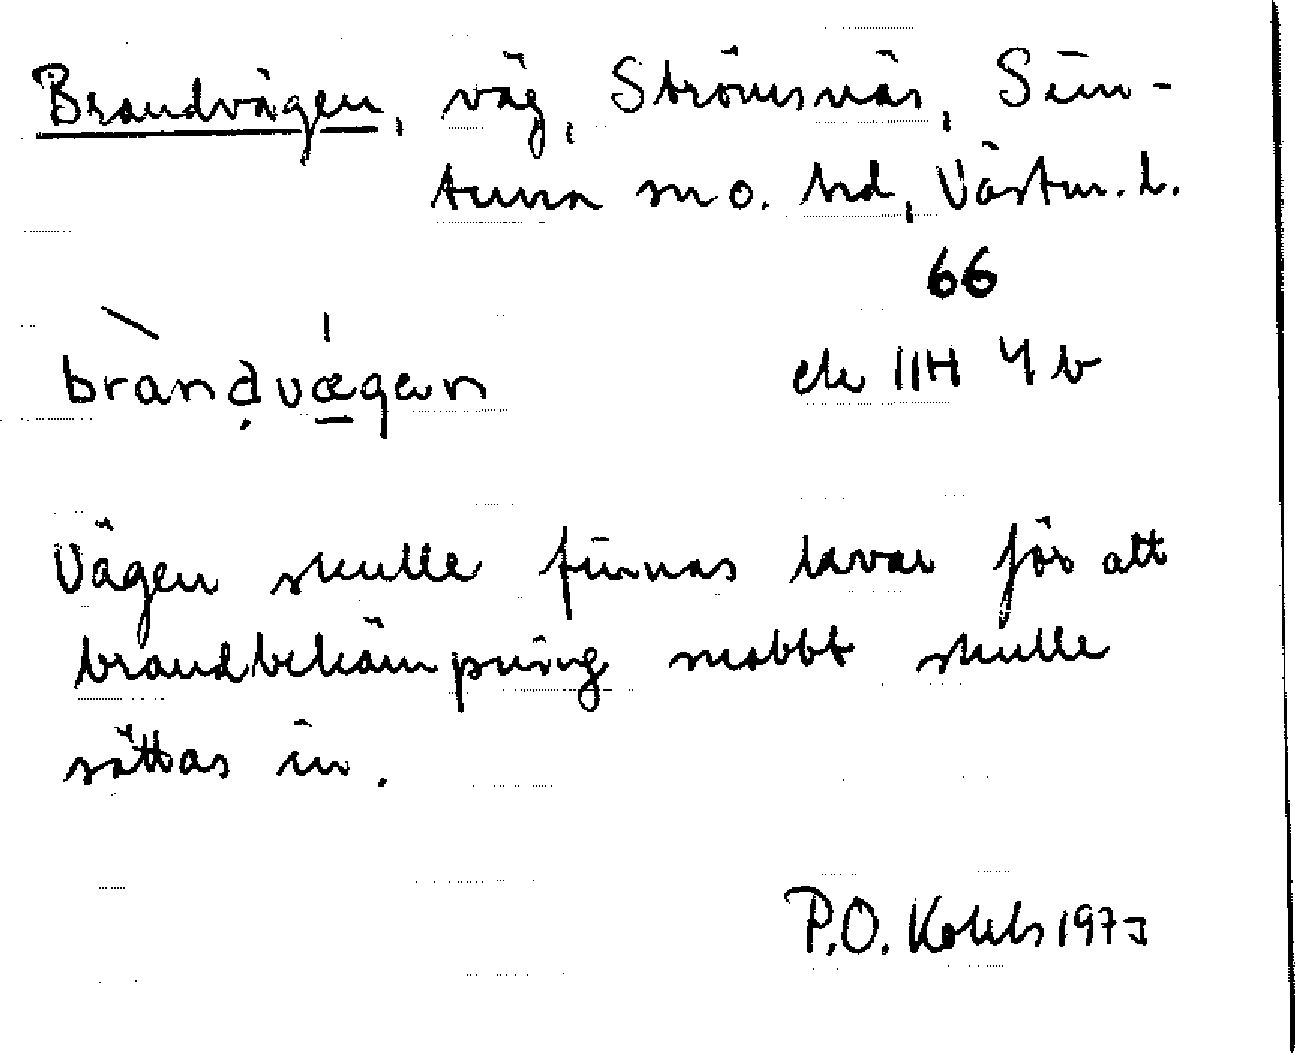 Brandvägen, väg, Strömsnäs, Sim-
tuna sn o. hd, Västm. l.
66
brandvægen ek 11H 4 b
Vägen skulle finnas kvar för att
brandbekämpning snabbt skulle
sättas in.
P.O. 197